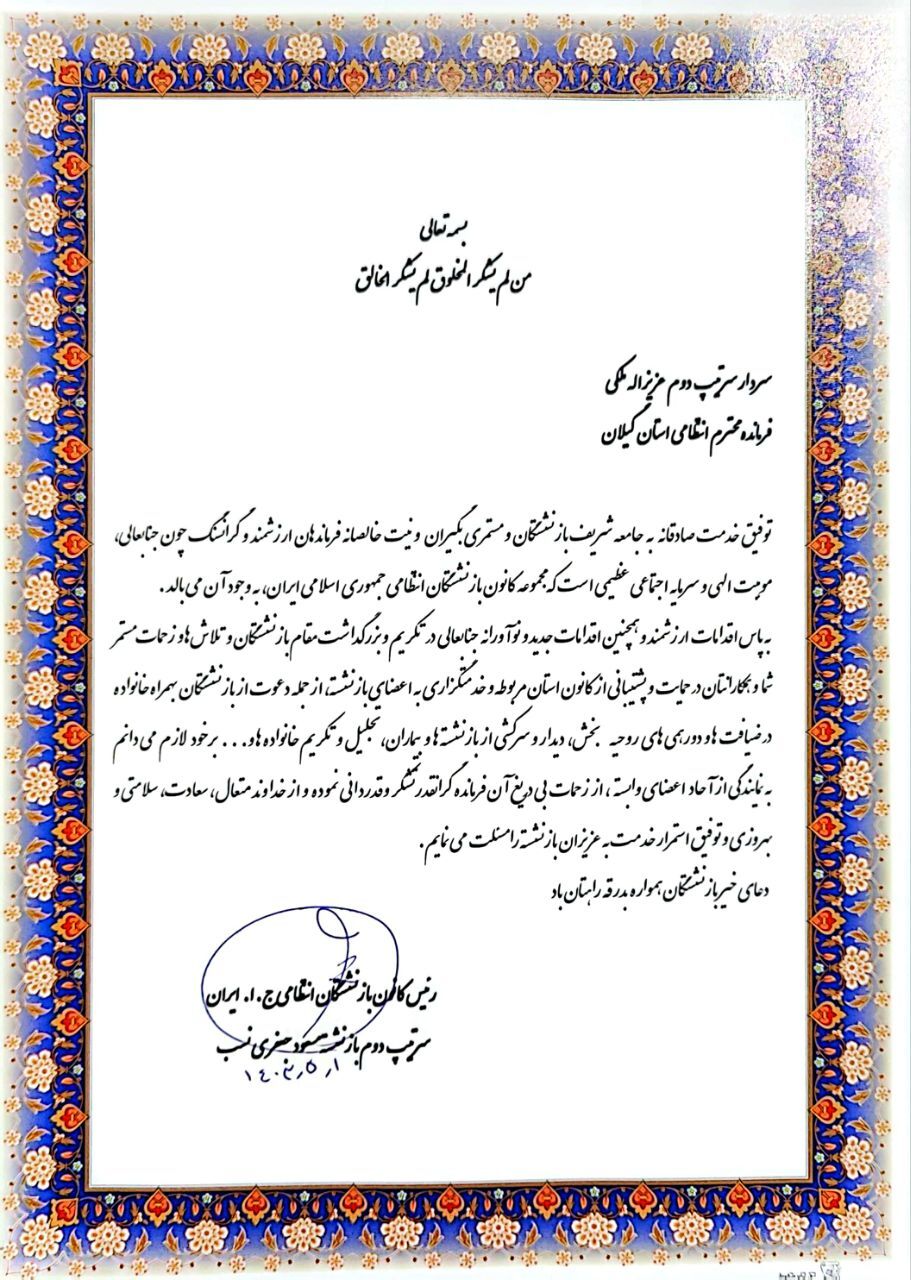 بسمه تعالی
من لم یشکر المخلوق لم یشکر الخالق
سردار سرتیپ دوم عزیزاله ملکی
فرمانده محترم انتظامی استان گیلان
توفیق خدمت صادقانه به جامعه شریف بازنشستگان و مستمری بگیران و نیت خالصانه فرماندهان ارزشمند و گرانسنگ چون جنابعالی،
موهبت الهی و سرمایه اجتماعی عظیمی است که مجموعه کانون بازنشستگان انتظامی جمهوری اسلامی ایران، به وجود آن می بالد.
به پاس اقدامات ارزشمند و همچنین اقدامات جدید و نوآورانه جنابعالی در تکریم و بزرگداشت مقام بازنشستگان و تلاش ها و زحمات مستمر
شما و همکارانتان در حمایت و پشتیبانی از کانون استان مربوطه و خدمتگزاری به اعضای بازنشسته، از جمله دعوت از بازنشستگان بهمراه خانواده
در ضیافت ها و دورهمی های روحیه بخش، دیدار و سرکشی از بازنشسته ها و بیماران، تجلیل و تکریم خانواده ها و... بر خود لازم می دانم
به نمایندگی از آحاد اعضای وابسته، از زحمات بی دریغ آن فرمانده گرانقدر تشکر و قدردانی نموده و از خداوند متعال، سعادت، سلامتی و
بهروزی و توفیق استمرار خدمت به عزیزان بازنشسته را مسئلت می نمایم.
دعای خیر بازنشستگان همواره بدرقه راهتان باد
رئیس کانون بازنشستگان انتظامی ج.ا. ایران
سرتیپ دوم بازنشسته مسعود جعفری نسب